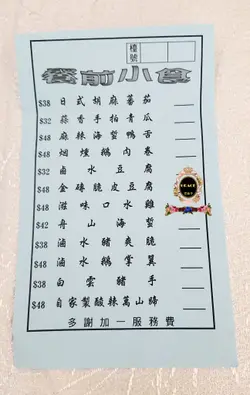 檯號
餐前小食
$38 日式胡麻蕃茄
$32 蒜香手拍青瓜
$48 麻辣海蜇鴨舌
$48 烟燻鵝肉卷
$32 鹵水豆腐
$48 金磚脆皮豆腐
$48 滋味口水雞
$42 舟山海蜇
$38 滷水豬爽脆
$48 滷水鵝掌翼
$38 白雲豬手
$48 自家製酸辣萬山蹄
多謝加一服務費